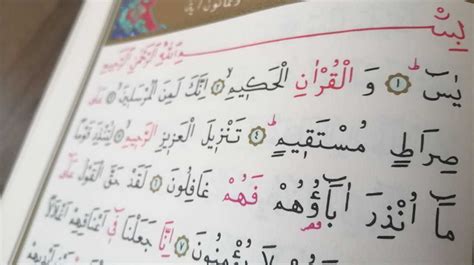 وثمانون
بِسْمِ اللهِ الرَّحْمٰنِ الرَّحِيمِ
يٰسٓ ۜ ﴿١﴾ وَ الْقُرْاٰنِ الْحَكِيمِۙ ﴿٢﴾ اِنَّكَ لَمِنَ الْمُرْسَلِينَۙ ﴿٣﴾ عَلٰى
صِرَاطٍ مُسْتَقِيمٍۜ ﴿٤﴾ تَنْزِيلَ الْعَزِيزِ الرَّحِيمِۙ ﴿٥﴾ لِتُنْذِرَ قَوْمًا
مَٓا اُنْذِرَ اٰبَٓاؤُهُمْ فَهُمْ غَافِلُونَ ﴿٦﴾ لَقَدْ حَقَّ الْقَوْلُ عَلٰٓى
فَهُمْ لَا يُؤْمِنُونَ ﴿٧﴾ اِنَّا جَعَلْنَا فِٓي اَعْنَاقِهِمْ اَغْلَالًا